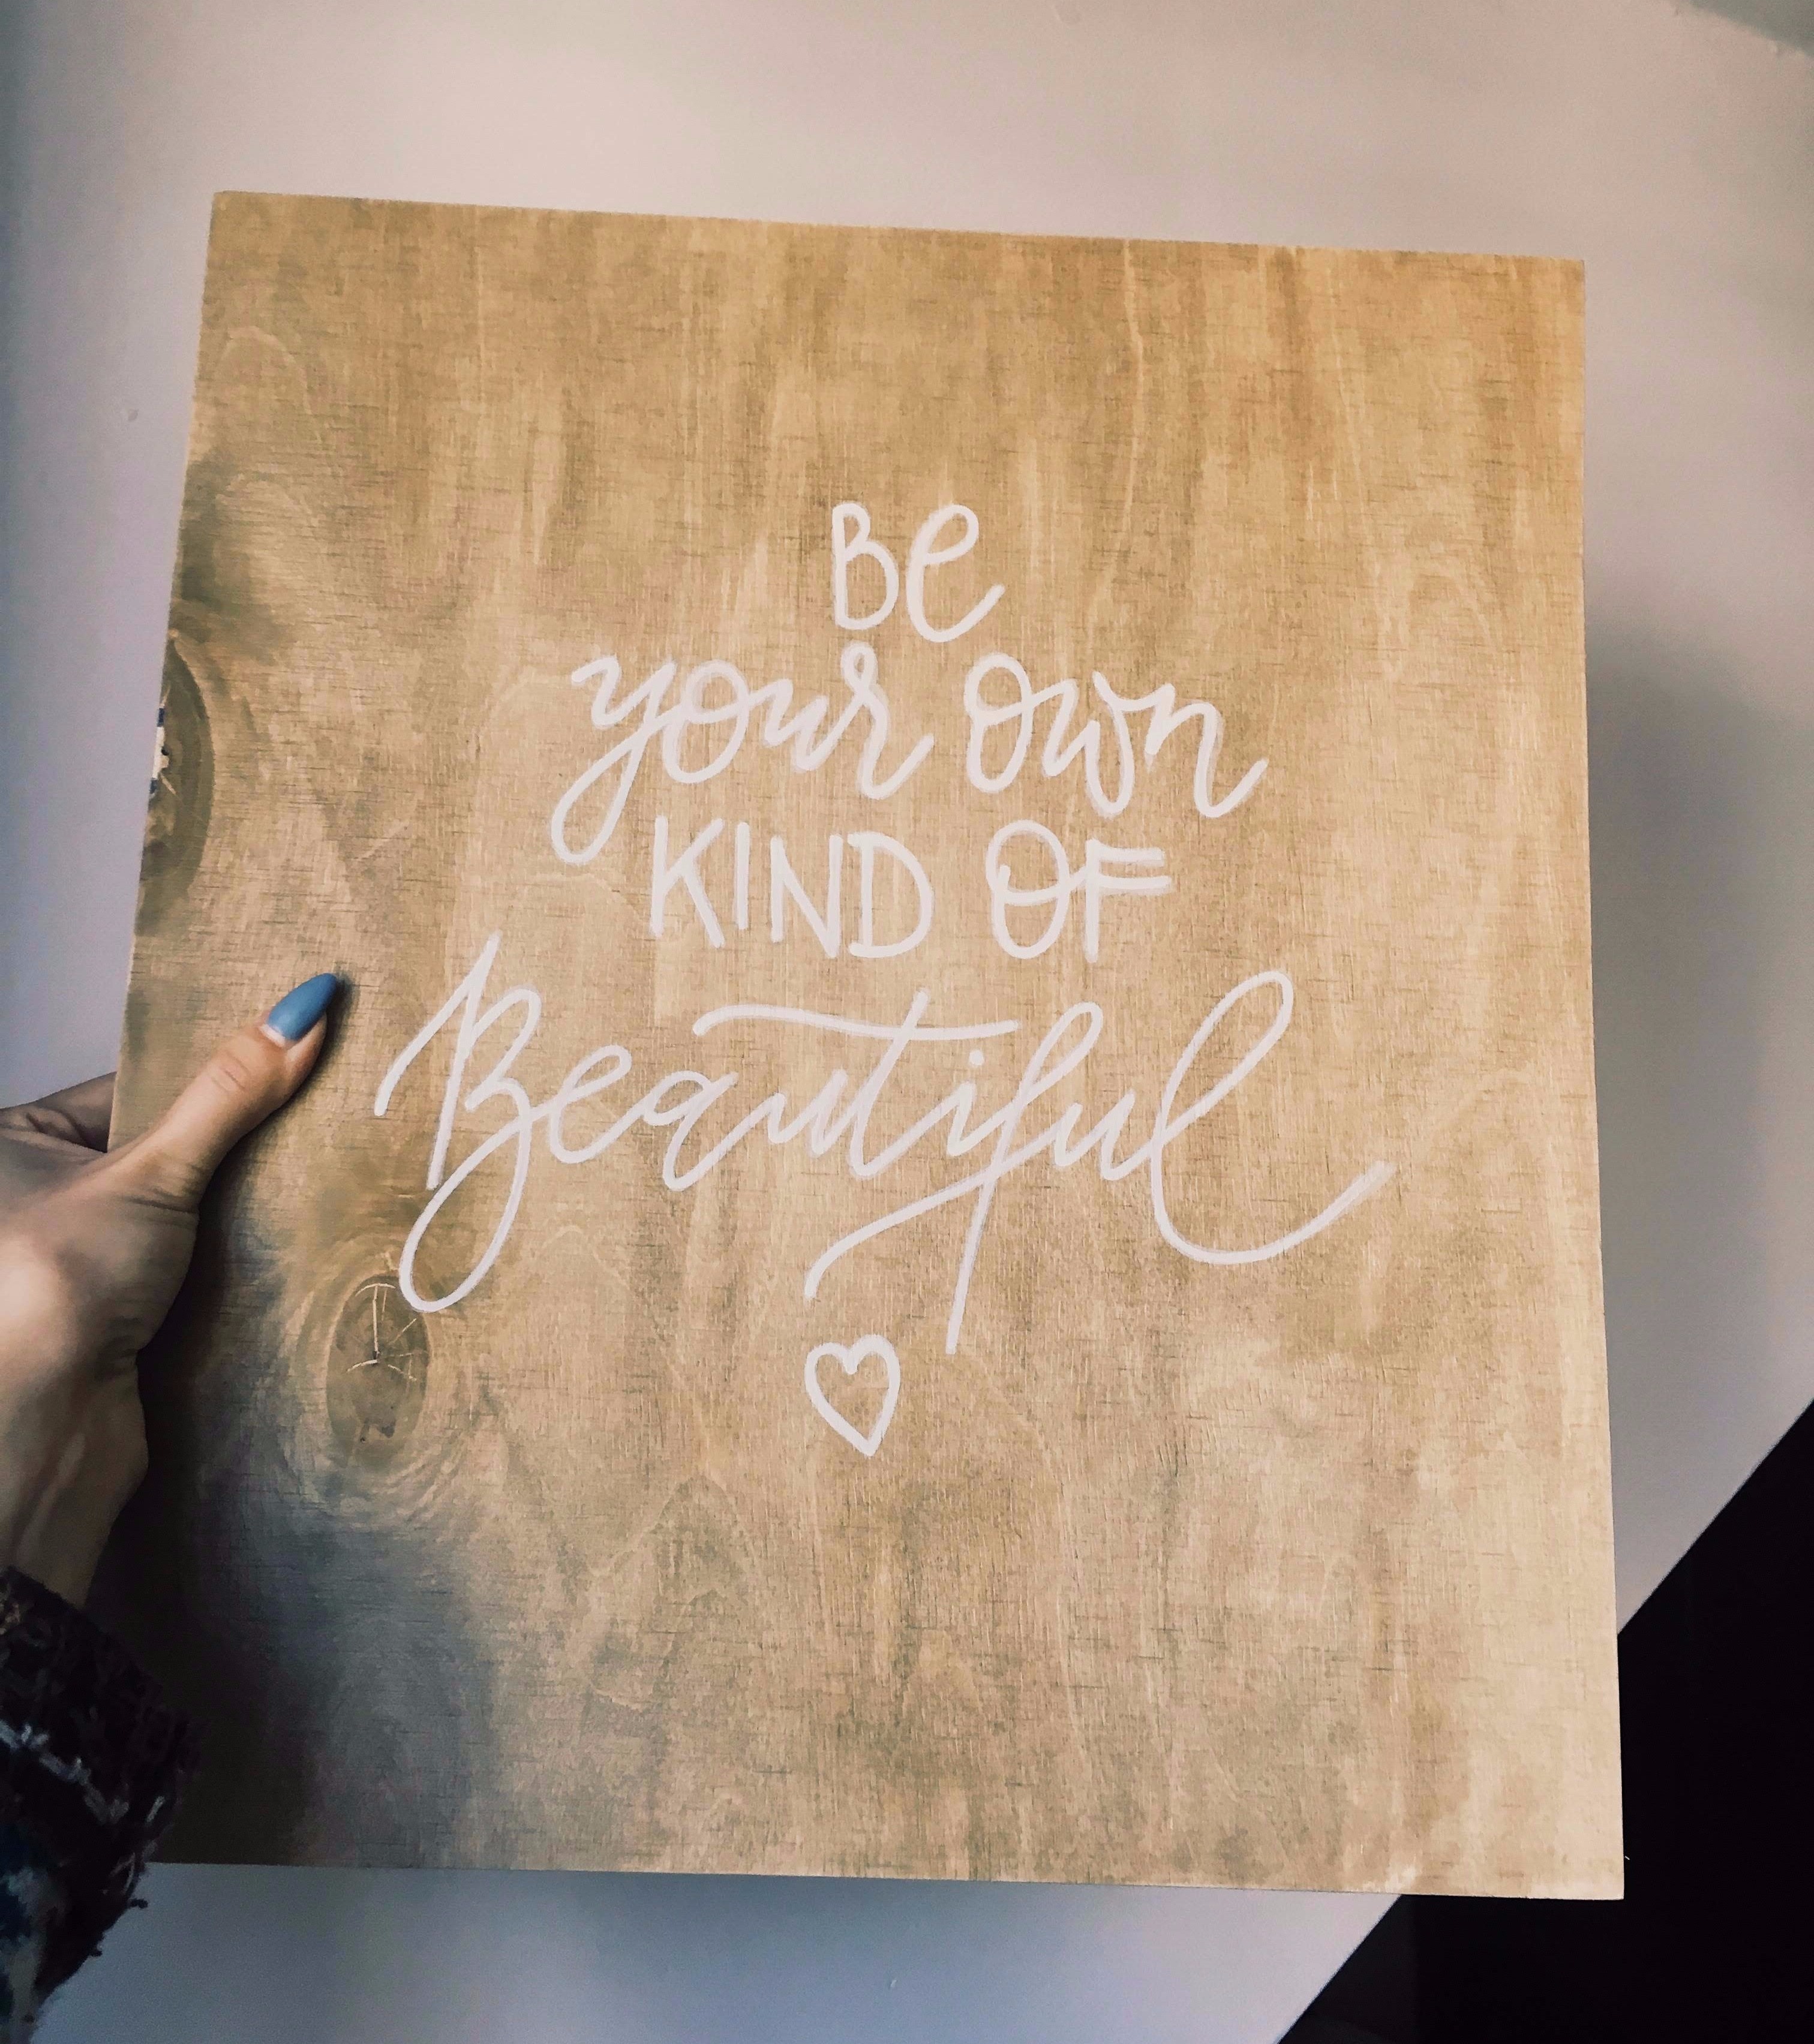 Be
your own
KIND OF
Beautiful